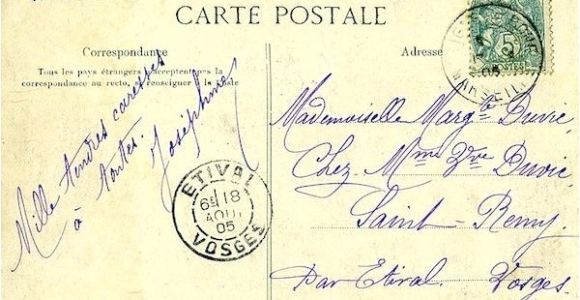 CARTE POSTALE
Correspondance
Tous les pays étrangers n'acceptent pas la
correspondance au recto, se renseigner à la Poste
Mille tendres caresses
à toutes.
Joséphine
Adresse
5
POSTES
05
MARSEILLE
ETIVAL
6E 18
AOUT
05
VOSGES
Mademoiselle Marg
Chez Mme Vve
Saint-Remy
Par Etival. Vosges.